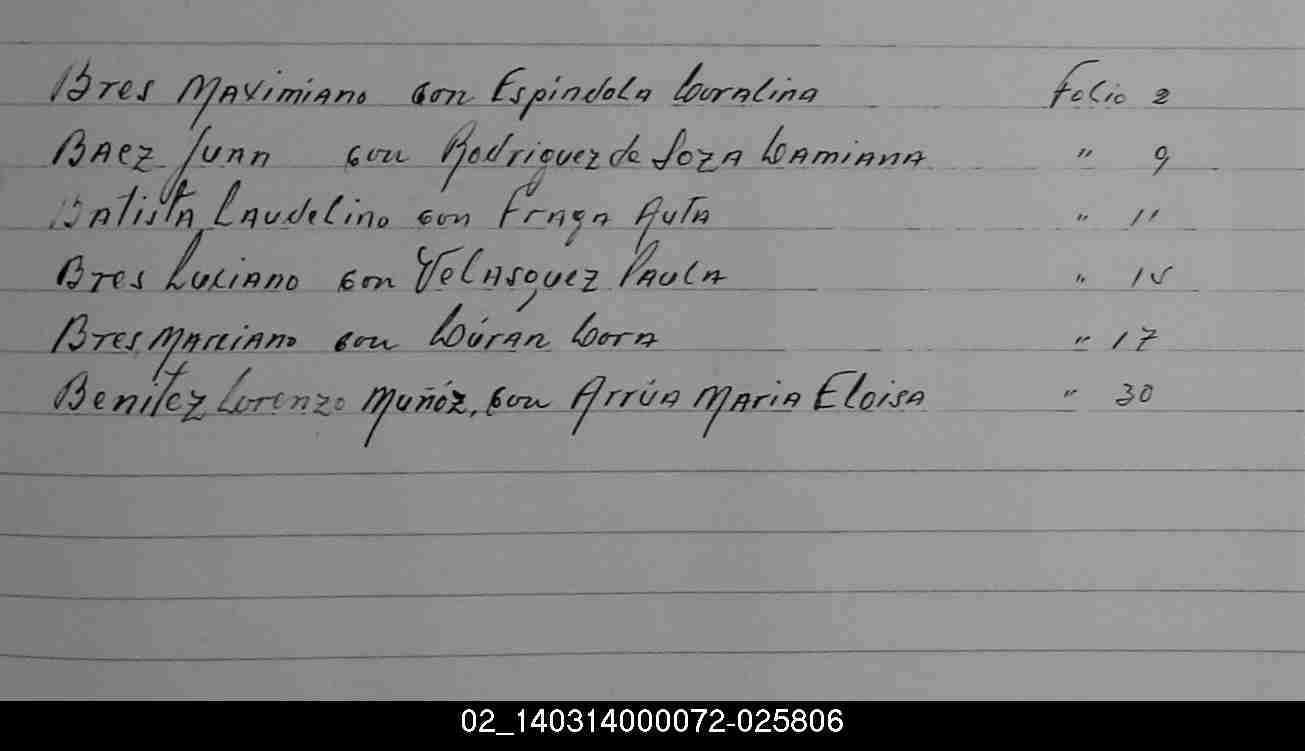 Bres Maximiano con Espíndola Doralina Folio 2
Baez Juan con Rodriguez de Soza Damiana " 9
Batista Laudelino con Fraga Auta " 11
Bres Luciano con Velasquez Paula " 15
Bres Marciano con Dúran Dora " 17
Benitez Lorenzo Muñóz, con Arrúa Maria Eloisa " 30
02_140314000072-025806